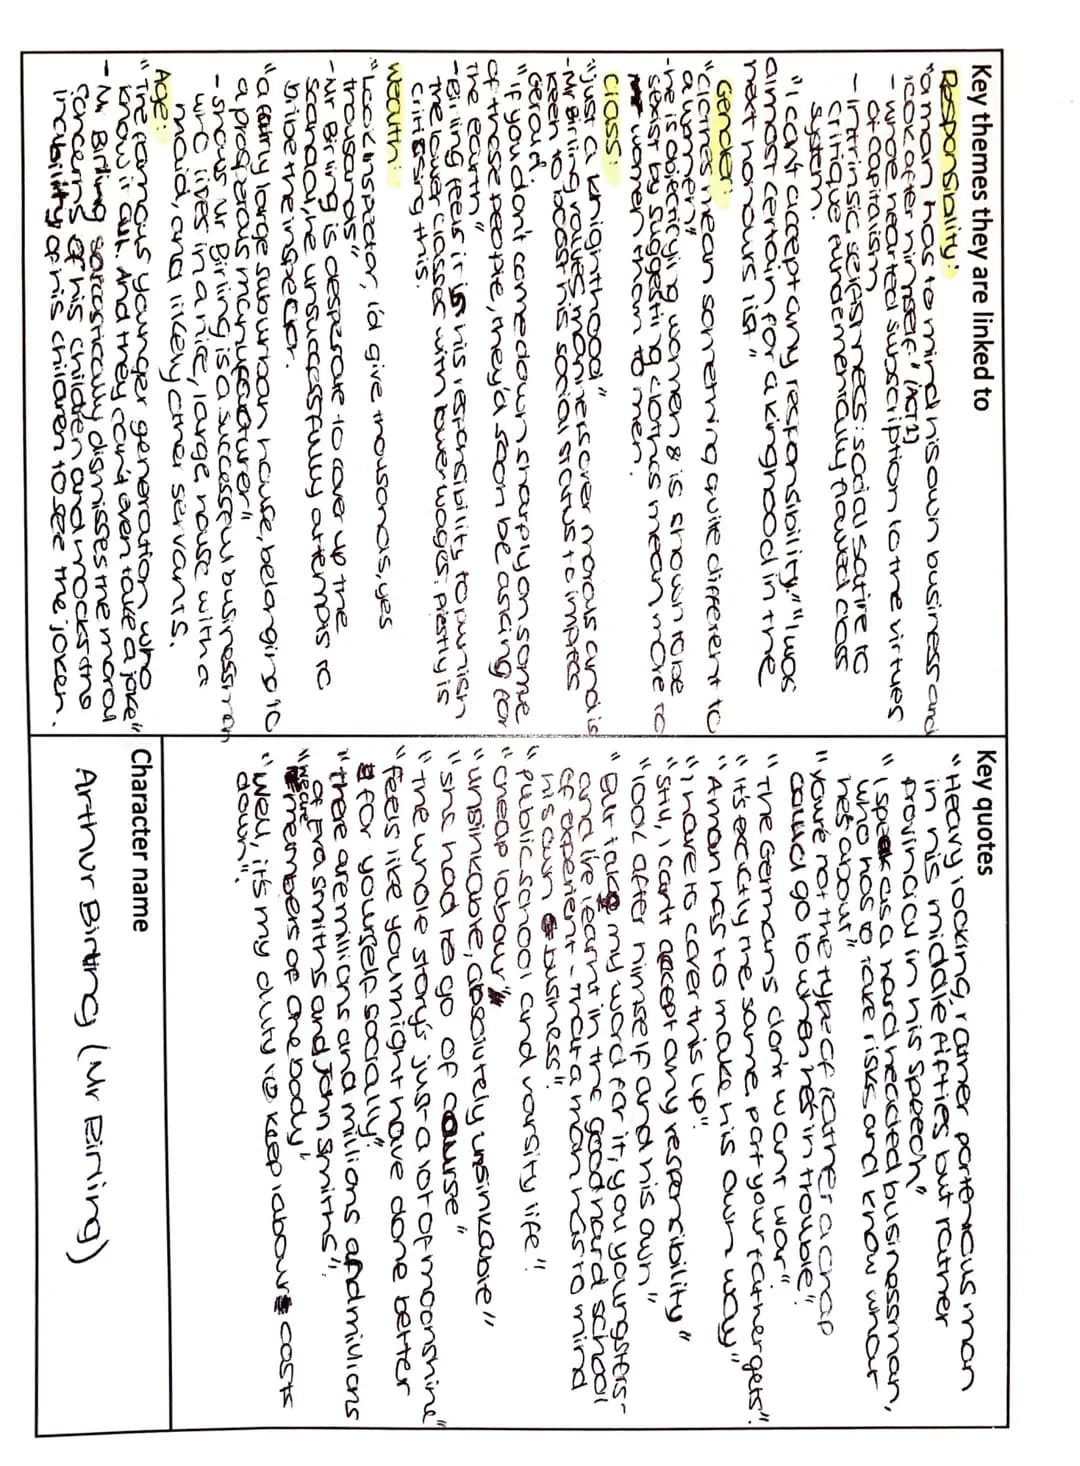 Key themes they are linked to
Responsibility:
"a man has to mind his own business and
look after himself" (Act 1)
- whole hearted subscription to the virtues
of capitalism
- intrinsic selfishness: social satire to
critique fundamentally flawed class
system.
"I can't accept any responsibility" "I was
almost certain for a knighthood in the
next honours list"
Gender:
"clothes mean something quite different to
a women"
- he is objectifying women & is shown to be
sexist by suggesting clothes mean more to
women than to men.
Class:
"just a knighthood"
- Mr Birling values manners over morals and is
keen to boast his social status to impress
Gerald.
"If you don't come down sharply on some
of these people, they'd soon be asking for
the earth"
- Birling feels it is his responsibility to punish
the lower classes with lower wages. Priestly is
critising this.
Wealth:
"Look inspector, I'd give thousands, yes
thousands"
- Mr Birling is desperate to cover up the
scandal, he unsuccessfully attempts to
bribe the inspector.
"a fairly large suburban house, belonging to
a prosperous manufacturer"
- shows Mr Birling is a successful businessman
who lives in a nice, large house with a
maid, and likely other servants.
Age:
"The famous younger generation who
know it all. And they can't even take a joke"
- Mr Birling sarcastically dismisses the moral
concerns of his children and mocks the
inability of his children to see the joke.
Key quotes
"Heavy looking, rather portentous man
in his middle fifties but rather
provincial in his speech"
"I speak as a hard headed businessman,
who has to take risks and know what
he's about"
"you're not the type of father a chap
could go to when he's in trouble".
"The Germans don't want war"
"it's exactly the same port your father gets".
"A man has to make his own way"
"I have to cover this up".
"Still, I can't accept any responsibility"
"look after himself and his own"
"But take my word for it, you youngsters -
and I've learnt in the good hard school
of experient - that a man has to mind
his own business".
"public-school and varsity life"
"cheap labour"
"unsinkable, absolutely unsinkable"
"she had to go of course"
"The whole story's just a lot of moonshine"
"feels like you might have done better
for yourself socially".
"there are millions and millions and millions
of Eva smiths and John smiths".
"We are members of one body"
"Well, it's my duty to keep labour costs
down".
Character name
Arthur Birling (Mr Birling)